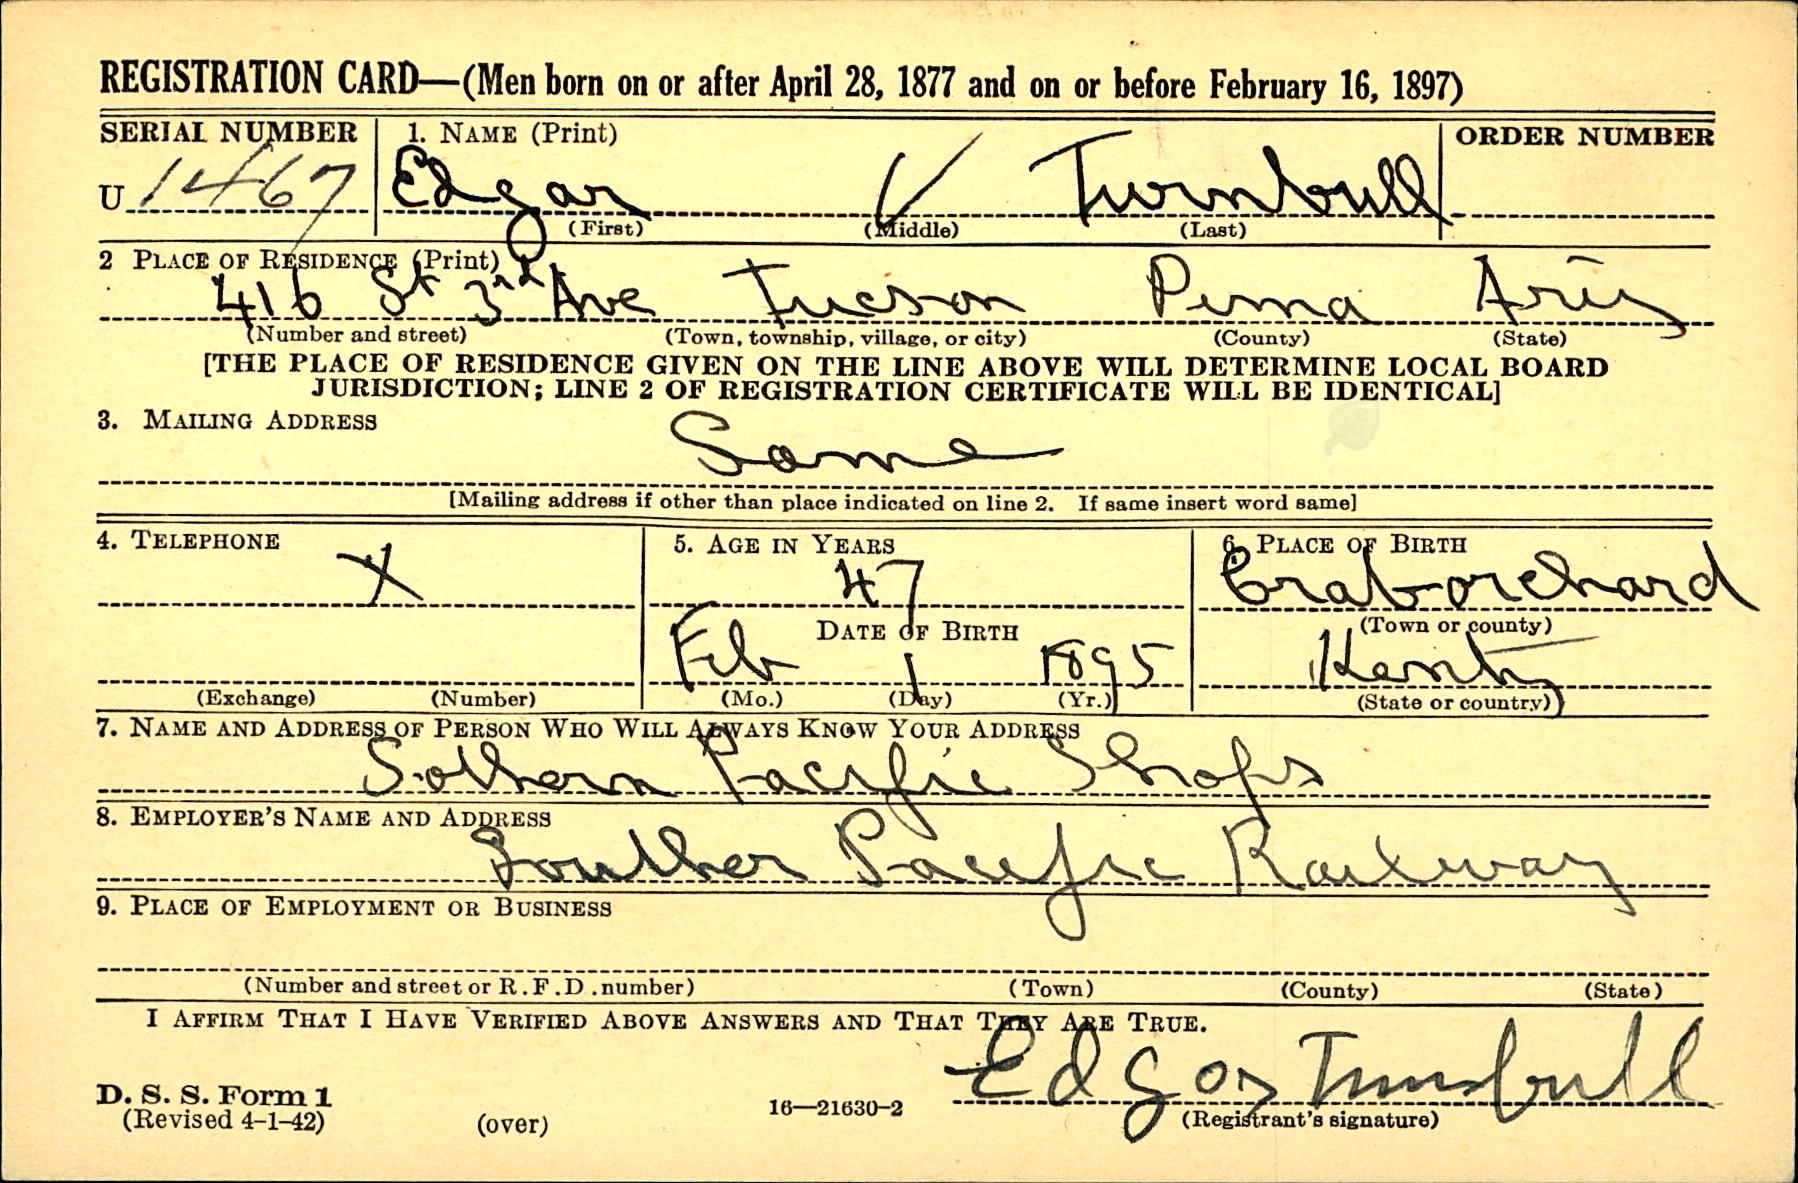 REGISTRATION CARD—(Men born on or after April 28, 1877 and on or before February 16, 1897)
SERIAL NUMBER 1. NAME (Print) ORDER NUMBER
U 1467 Edgar V Turnbull
(First) (Middle) (Last)
2 PLACE OF RESIDENCE (Print)
416 St 3rd Ave Tucson Pima Ariz
(Number and street) (Town, township, village, or city) (County) (State)
[THE PLACE OF RESIDENCE GIVEN ON THE LINE ABOVE WILL DETERMINE LOCAL BOARD
JURISDICTION; LINE 2 OF REGISTRATION CERTIFICATE WILL BE IDENTICAL]
3. MAILING ADDRESS
Same
[Mailing address if other than place indicated on line 2. If same insert word same]
4. TELEPHONE 5. AGE IN YEARS 6. PLACE OF BIRTH
X 47 Craborchard
DATE OF BIRTH (Town or county)
Feb 1 1895 Kenty
(Exchange) (Number) (Mo.) (Day) (Yr.) (State or country)
7. NAME AND ADDRESS OF PERSON WHO WILL ALWAYS KNOW YOUR ADDRESS
Sothern Pacific Shops
8. EMPLOYER'S NAME AND ADDRESS
Souther Pacific Railway
9. PLACE OF EMPLOYMENT OR BUSINESS
(Number and street or R.F.D. number) (Town) (County) (State)
I AFFIRM THAT I HAVE VERIFIED ABOVE ANSWERS AND THAT THEY ARE TRUE.
Edgar Turnbull
D. S. S. Form 1
(Revised 4-1-42) (over) 16—21630-2 (Registrant's signature)